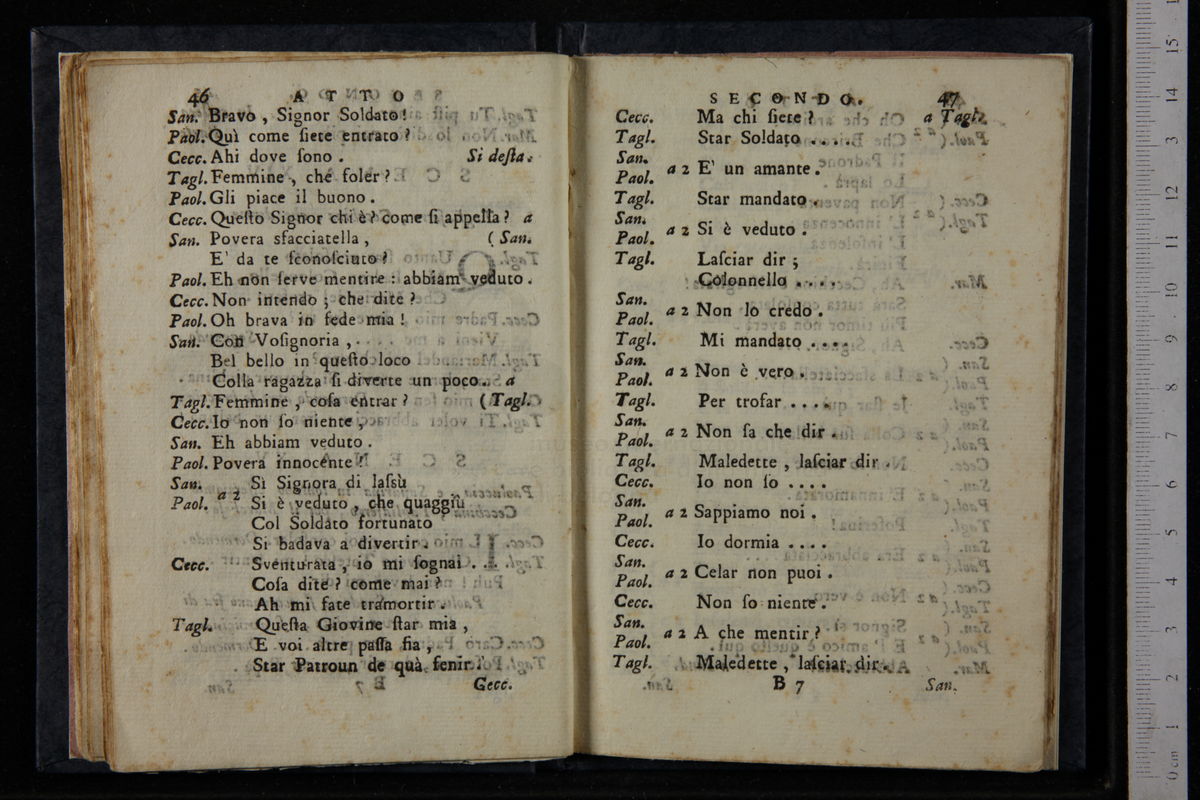 46 ATTO
San. Bravo , Signor Soldato !
Paol. Quì come ſiete entrato ?
Cecc. Ahi dove ſono . Si deſta .
Tagl. Femmine , ché foler ?
Paol. Gli piace il buono .
Cecc. Queſto Signor chi è ? come ſi appella ? a
San. Povera sfacciatella , ( San.
E' da te ſconoſciuto ?
Paol. Eh non ſerve mentire : abbiam veduto .
Cecc. Non intendo ; che dite ?
Paol. Oh brava in fede mia !
San. Con Voſignoria ,
Bel bello in queſto loco
Colla ragazza ſi diverte un poco . a
Tagl. Femmine , coſa entrar ? ( Tagl.
Cecc. Io non ſo niente ,
San. Eh abbiam veduto .
Paol. Povera innocente !
San. Sì Signora di laſsù
Paol. a 2 Si è veduto , che quaggiù
Col Soldato fortunato
Si badava a divertir .
Cecc. Sventurata , io mi ſognai . . .
Coſa dite ? come mai ?
Ah mi fate tramortir .
Tagl. Queſta Giovine ſtar mia ,
E voi altre paſſa fia ,
Star Patroun de quà fenir .
Cecc.
SECONDO. 47
Cecc. Ma chi ſiete ? a Tagl.
Tagl. Star Soldato . . . .
San.
Paol. a 2 E' un amante .
Tagl. Star mandato .
San.
Paol. a 2 Si è veduto .
Tagl. Laſciar dir ;
Colonnello . . . .
San.
Paol. a 2 Non lo credo .
Tagl. Mi mandato . . . .
San.
Paol. a 2 Non è vero .
Tagl. Per trofar . . . .
San.
Paol. a 2 Non ſa che dir .
Tagl. Maledette , laſciar dir .
Cecc. Io non ſo . . . .
San.
Paol. a 2 Sappiamo noi .
Cecc. Io dormia . . . .
San.
Paol. a 2 Celar non puoi .
Cecc. Non ſo niente .
San.
Paol. a 2 A che mentir ?
Tagl. Maledette , laſciar dir .
B 7 San.
0 cm 1 2 3 4 5 6 7 8 9 10 11 12 13 14 15